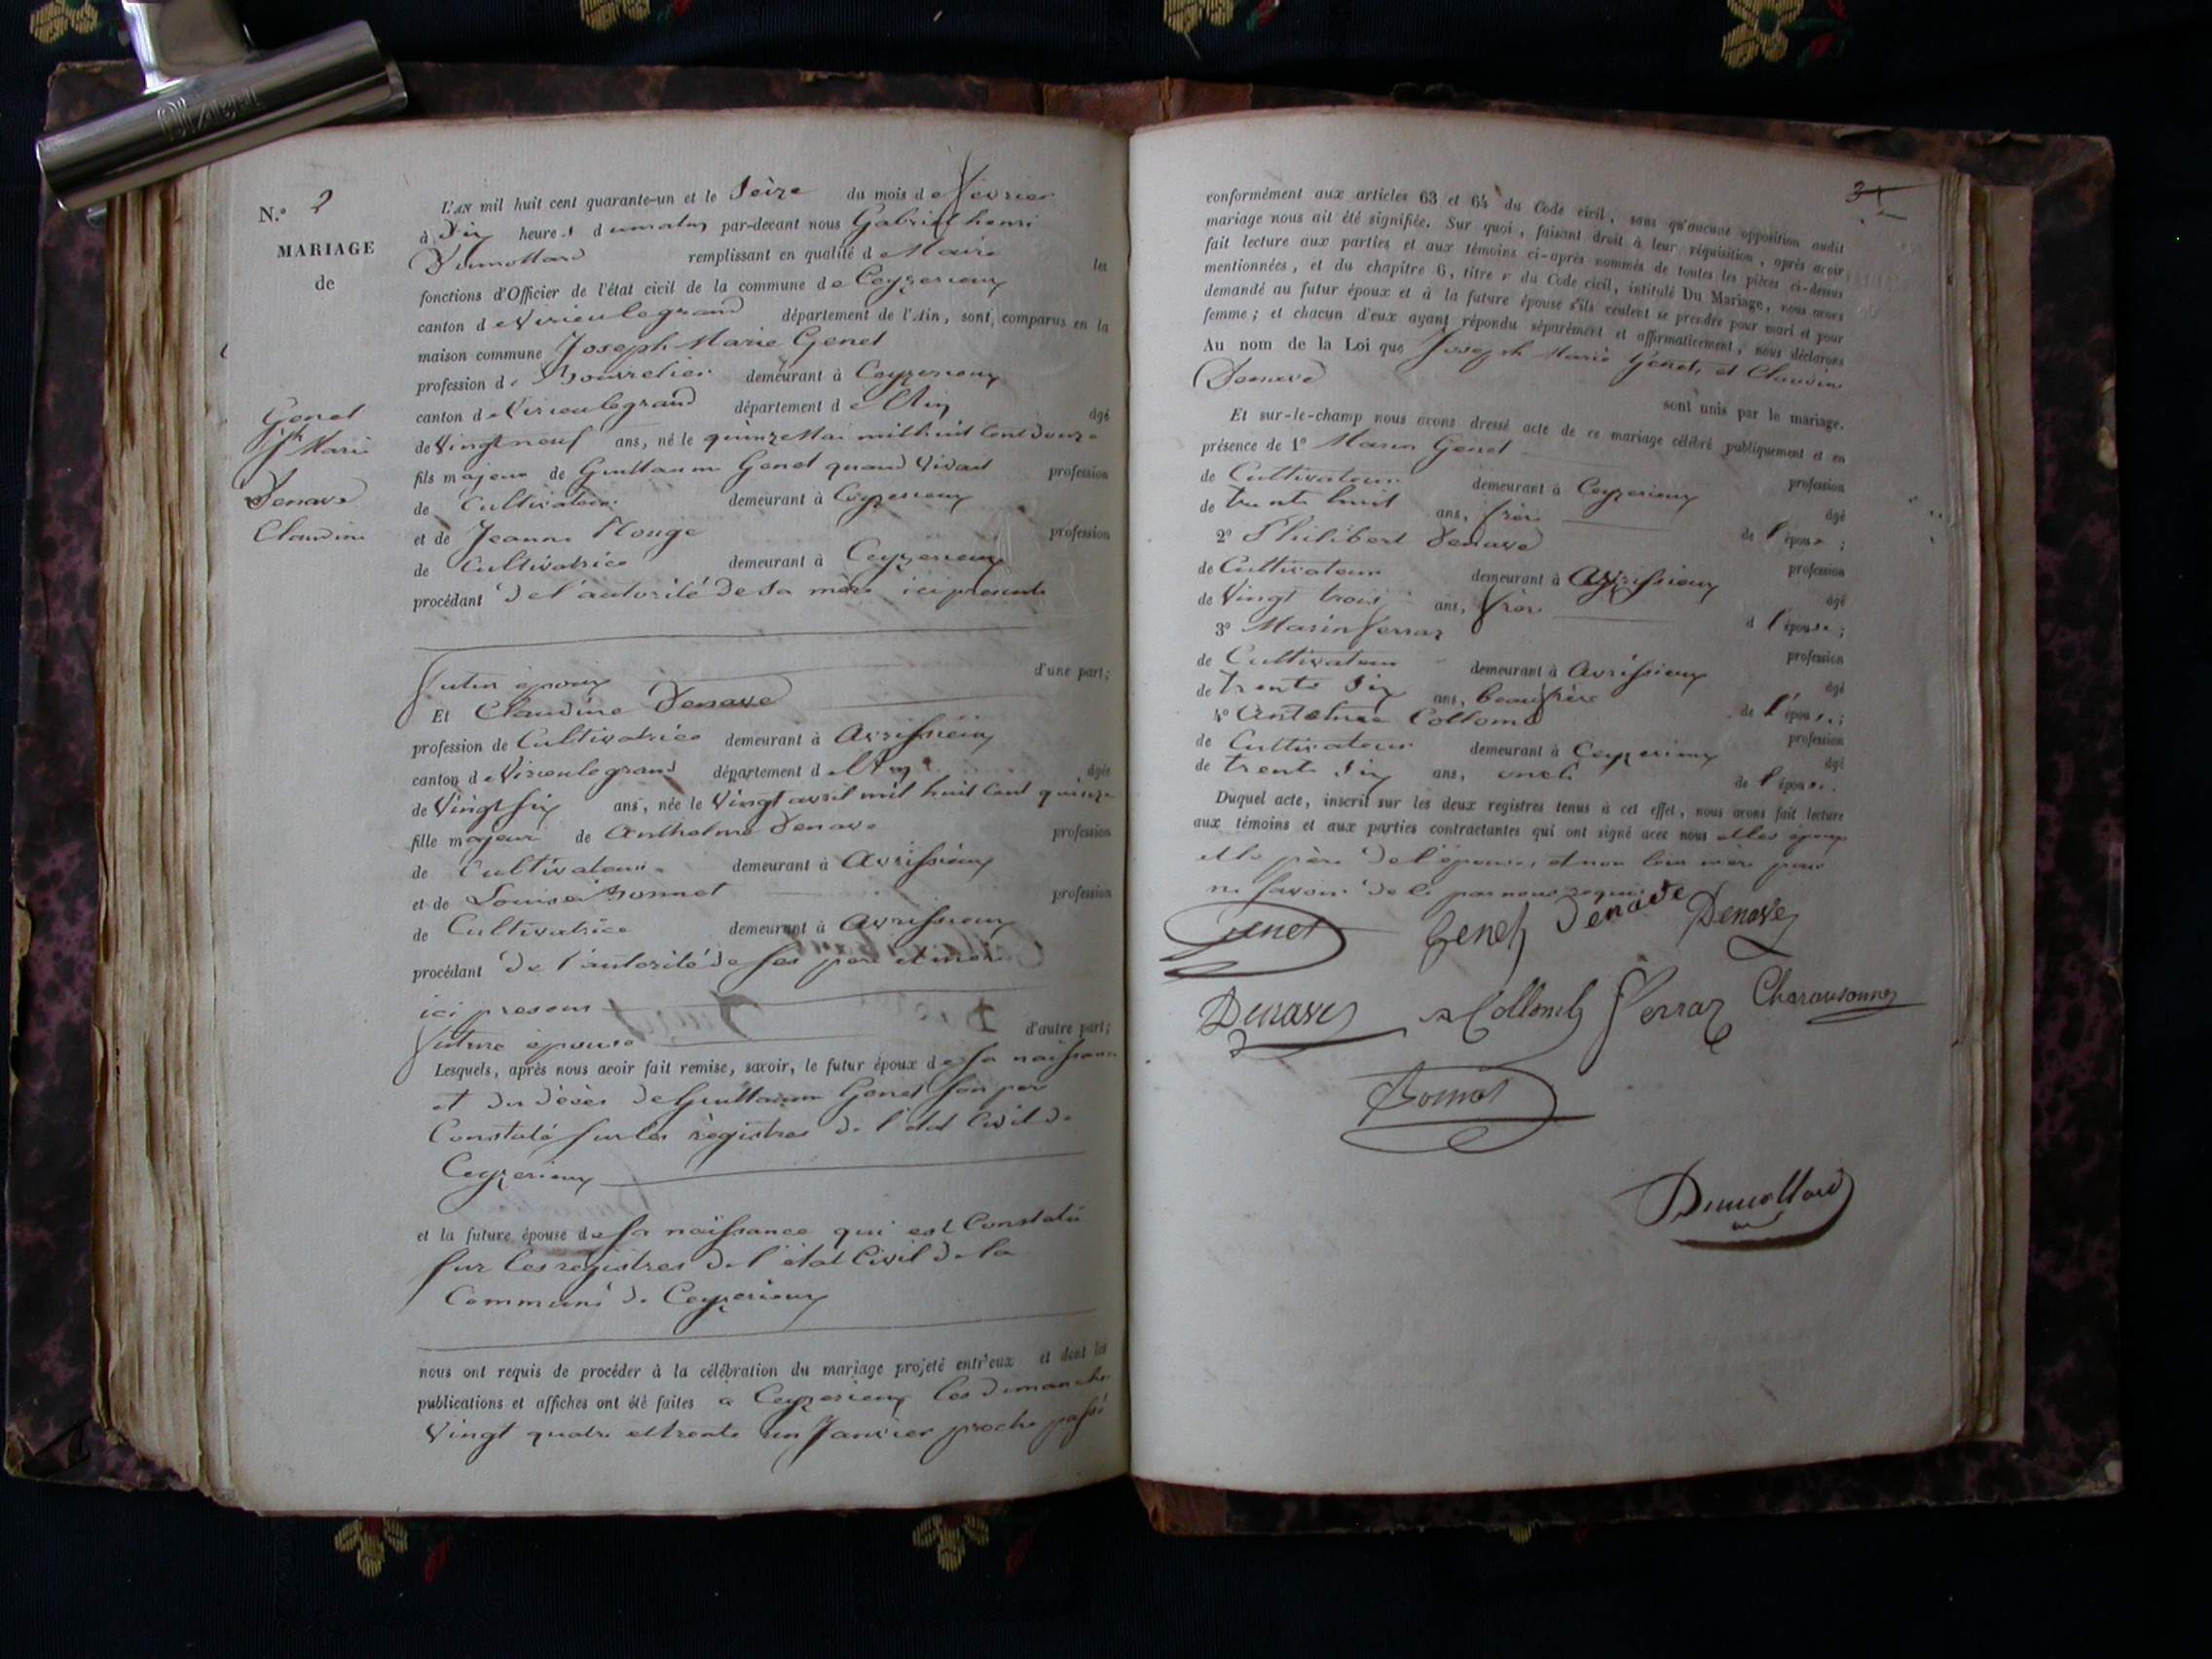 N.º 2
MARIAGE
de
Genet
Jph Marie
Denave
Claudine
L'AN mil huit cent quarante-un et le Seize du mois de février
à Dix heures du matin par-devant nous Gabriel henri
Dumollard remplissant en qualité de Maire les
fonctions d'Officier de l'état civil de la commune de Ceyzerieux
canton de Virieulegrand département de l'Ain, sont comparus en la
maison commune Joseph Marie Genet
profession de Bourrelier demeurant à Ceyzerieux
canton de Virieulegrand département de l'Ain âgé
de Vingt neuf ans, né le quinze Mai mil huit Cent Douze
fils majeur de Guillaume Genet quand Vivait profession
de Cultivateur demeurant à Ceyzerieux
et de Jeanne Rouge profession
de Cultivatrice demeurant à Ceyzerieux
procédant de l'autorité de sa mère ici présente
futur époux d'une part;
Et Claudine Denave
profession de Cultivatrice demeurant à Avrissieux
canton de Virieulegrand département de l'Ain âgée
de Vingt six ans, née le Vingt avril mil huit Cent quinze
fille majeure de Anthelme Denave profession
de Cultivateur demeurant à Avrissieux
et de Louise Bonnet profession
de Cultivatrice demeurant à Avrissieux
procédant de l'autorité de ses père et mère
ici présens
future épouse d'autre part;
Lesquels, après nous avoir fait remise, savoir, le futur époux de sa naissance
et du décès de Guillaume Genet son père
Constaté sur les registres de l'état Civil de
Ceyzerieux
et la future épouse de sa naissance qui est Constatée
sur les registres de l'état Civil de la
Commune de Ceyzerieux
nous ont requis de procéder à la célébration du mariage projeté entr'eux et dont les
publications et affiches ont été faites à Ceyzerieux les dimanche
Vingt quatre et trente un Janvier proche passé
3
conformément aux articles 63 et 64 du Code civil, sans qu'aucune opposition audit
mariage nous ait été signifiée. Sur quoi, faisant droit à leur réquisition, après avoir
fait lecture aux parties et aux témoins ci-après nommés de toutes les pièces ci-dessus
mentionnées, et du chapitre 6, titre v du Code civil, intitulé Du Mariage, nous avons
demandé au futur époux et à la future épouse s'ils veulent se prendre pour mari et pour
femme; et chacun d'eux ayant répondu séparément et affirmativement, nous déclarons
Au nom de la Loi que Joseph Marie Genet, et Claudine
Denave sont unis par le mariage.
Et sur-le-champ nous avons dressé acte de ce mariage célébré publiquement et en
présence de 1º Marin Genet profession
de Cultivateur demeurant à Ceyzerieux âgé
de trente huit ans, frère de l'époux;
2º Philibert Denave profession
de Cultivateur demeurant à Avrissieux âgé
de Vingt trois ans, frère d l'épouse;
3º Marin ferraz profession
de Cultivateur demeurant à Avrissieux âgé
de trente Six ans, beaufrère de l'épouse;
4º Antelme Collomb profession
de Cultivateur demeurant à Ceyzerieux âgé
de trente Six ans, oncle de l'épouse.
Duquel acte, inscrit sur les deux registres tenus à cet effet, nous avons fait lecture
aux témoins et aux parties contractantes qui ont signé avec nous et les époux
et le père de l'épouse, et non leur mère pour
ne savoir de ce par nous requis
Genet Genet Denave Denave
Denave Collomb ferraz Charausonney
Bonnet
Dumollard